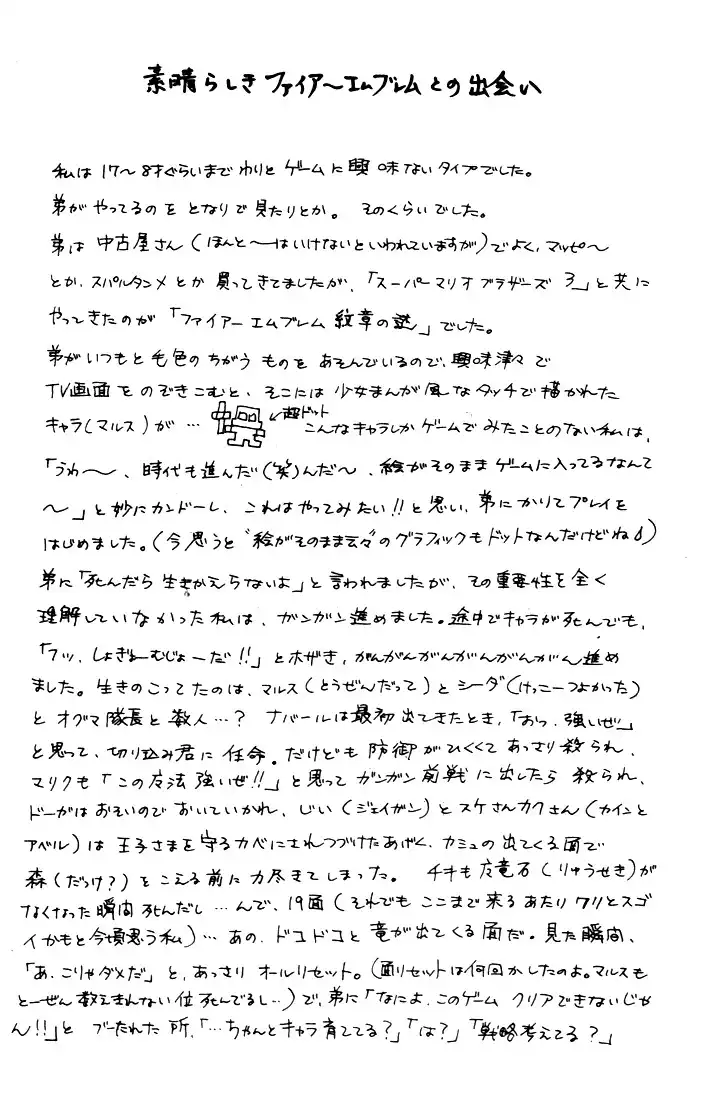 素晴らしきファイアーエムブレムとの出会い
私は17〜8才ぐらいまでわりとゲームに興味ないタイプでした。
弟がやってるのをとなりで見たりとか。そのくらいでした。
弟は中古屋さん(ほんと〜はいけないといわれていますが)でよく、マッピ〜
とか、スパルタンXとか買ってきてましたが、「スーパーマリオブラザーズ3」と共に
やってきたのが「ファイアーエムブレム紋章の謎」でした。
弟がいつもと毛色のちがうものをあそんでいるので、興味津々で
TV画面をのぞきこむと、そこには少女まんが風なタッチで描かれた
キャラ(マルス)が… ←超ドット こんなキャラしかゲームでみたことのない私は、
「うわ〜、時代も進んだ(笑)んだ〜、絵がそのままゲームに入ってるなんて
〜」と妙にカンドーし、これはやってみたい!!と思い、弟にかりてプレイを
はじめました。(今思うと〝絵がそのまま云々〟のグラフィックもドットなんだけどね)
弟に「死んだら生きかえらないよ」と言われましたが、その重要性を全く
理解していなかった私は、ガンガン進めました。途中でキャラが死んでも、
「フッ、しょぎょーむじょーだ!!」とホザき、がんがんがんがんがんがん進め
ました。生きのこってたのは、マルス(とうぜんだって)とシーダ(けっこーつよかった)
とオグマ隊長と数人…?ナバールは最初出てきたとき、「おっ、強いぜ」
と思って、切り込み君に任命。だけども防御がひくくてあっさり殺られ、
マリクも「この魔法強いぜ!!」と思ってガンガン前戦に出したら殺られ、
ドーガはおそいのでおいていかれ、じい(ジェイガン)とスケさんカクさん(カインと
アベル)は王子さまを守るカベにされつづけたあげく、カミュの出てくる面で
森(だっけ?)をこえる前に力尽きてしまった。チキも魔竜石(りゅうせき)が
なくなった瞬間死んだし…んで、19面(それでもここまで来るあたりワリとスゴ
イかもと今頃思う私)…あの、ドコドコと竜が出てくる面だ。見た瞬間、
「あ、こりゃダメだ」と、あっさりオールリセット。(面リセットは何回かしたのよ。マルスも
とーぜん数えきれない位死んでるし…)で、弟に「なによ、このゲームクリアできないじゃ
ん!!」とブーたれた所、「…ちゃんとキャラ育ててる?」「は?」「戦略考えてる?」